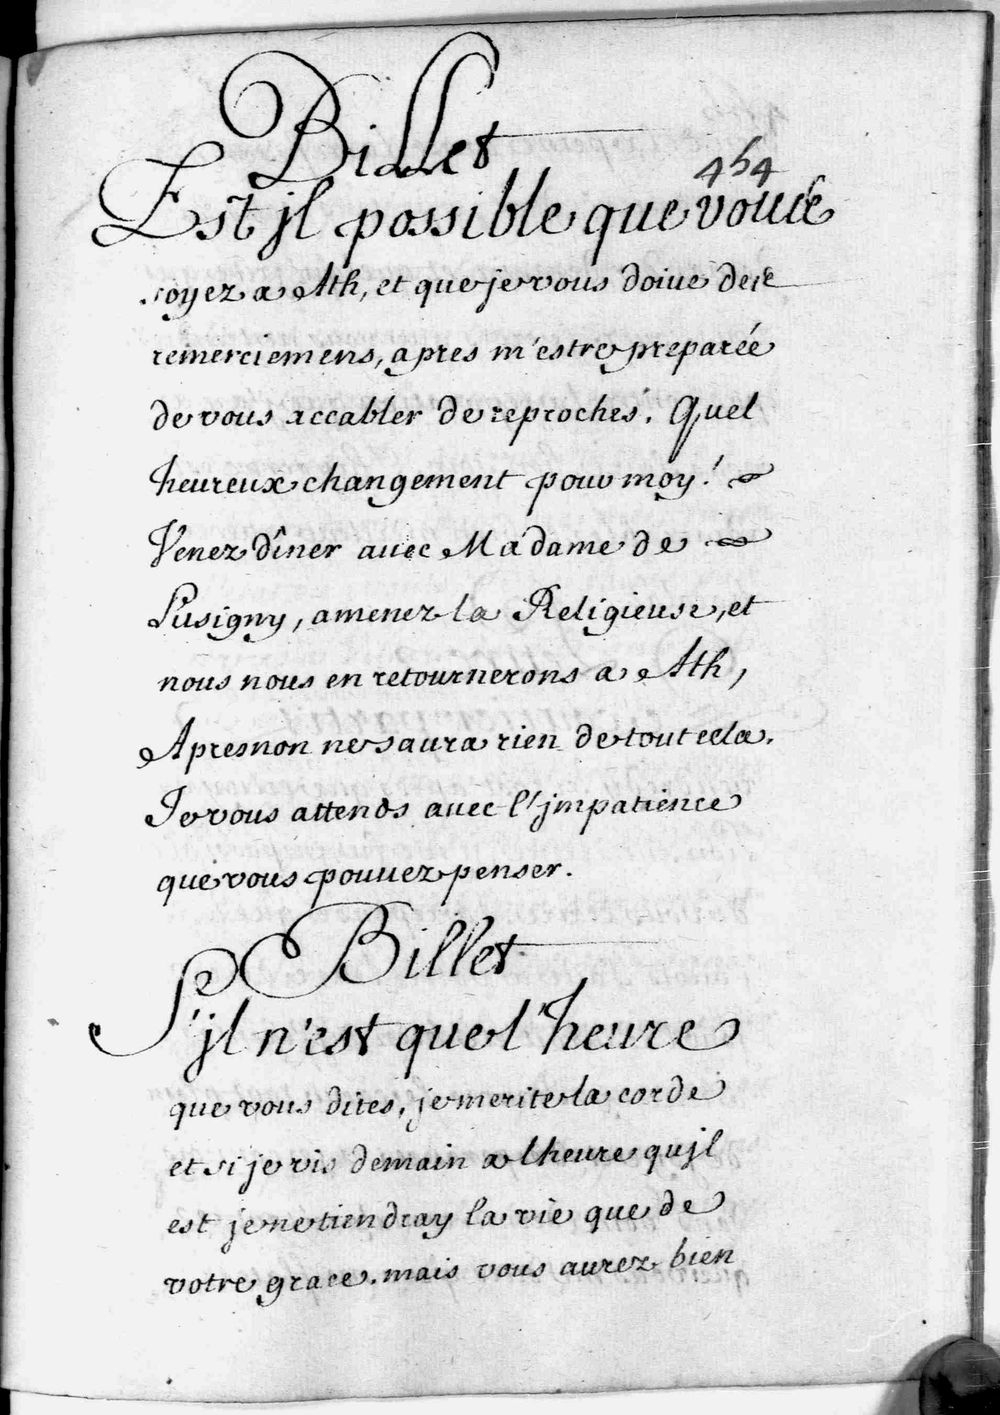 Billet
454
Est jl possible que vous
soyez a Ath, et que je vous doive des
remerciemens, apres m'estre preparée
de vous accabler de reproches. Quel
heureux changement pour moy!
Venez dîner avec Madame de
Lusigny, amenez la Religieuse, et
nous nous en retournerons a Ath,
Apresnon ne saura rien de tout cela.
Je vous attends avec l'jmpatience
que vous pouvez penser.
Billet
S'jl n'est que l'heure
que vous dites, je merite la corde
et si je vis demain a lheure qujl
est je ne tiendray la vie que de
votre grace. mais vous aurez bien